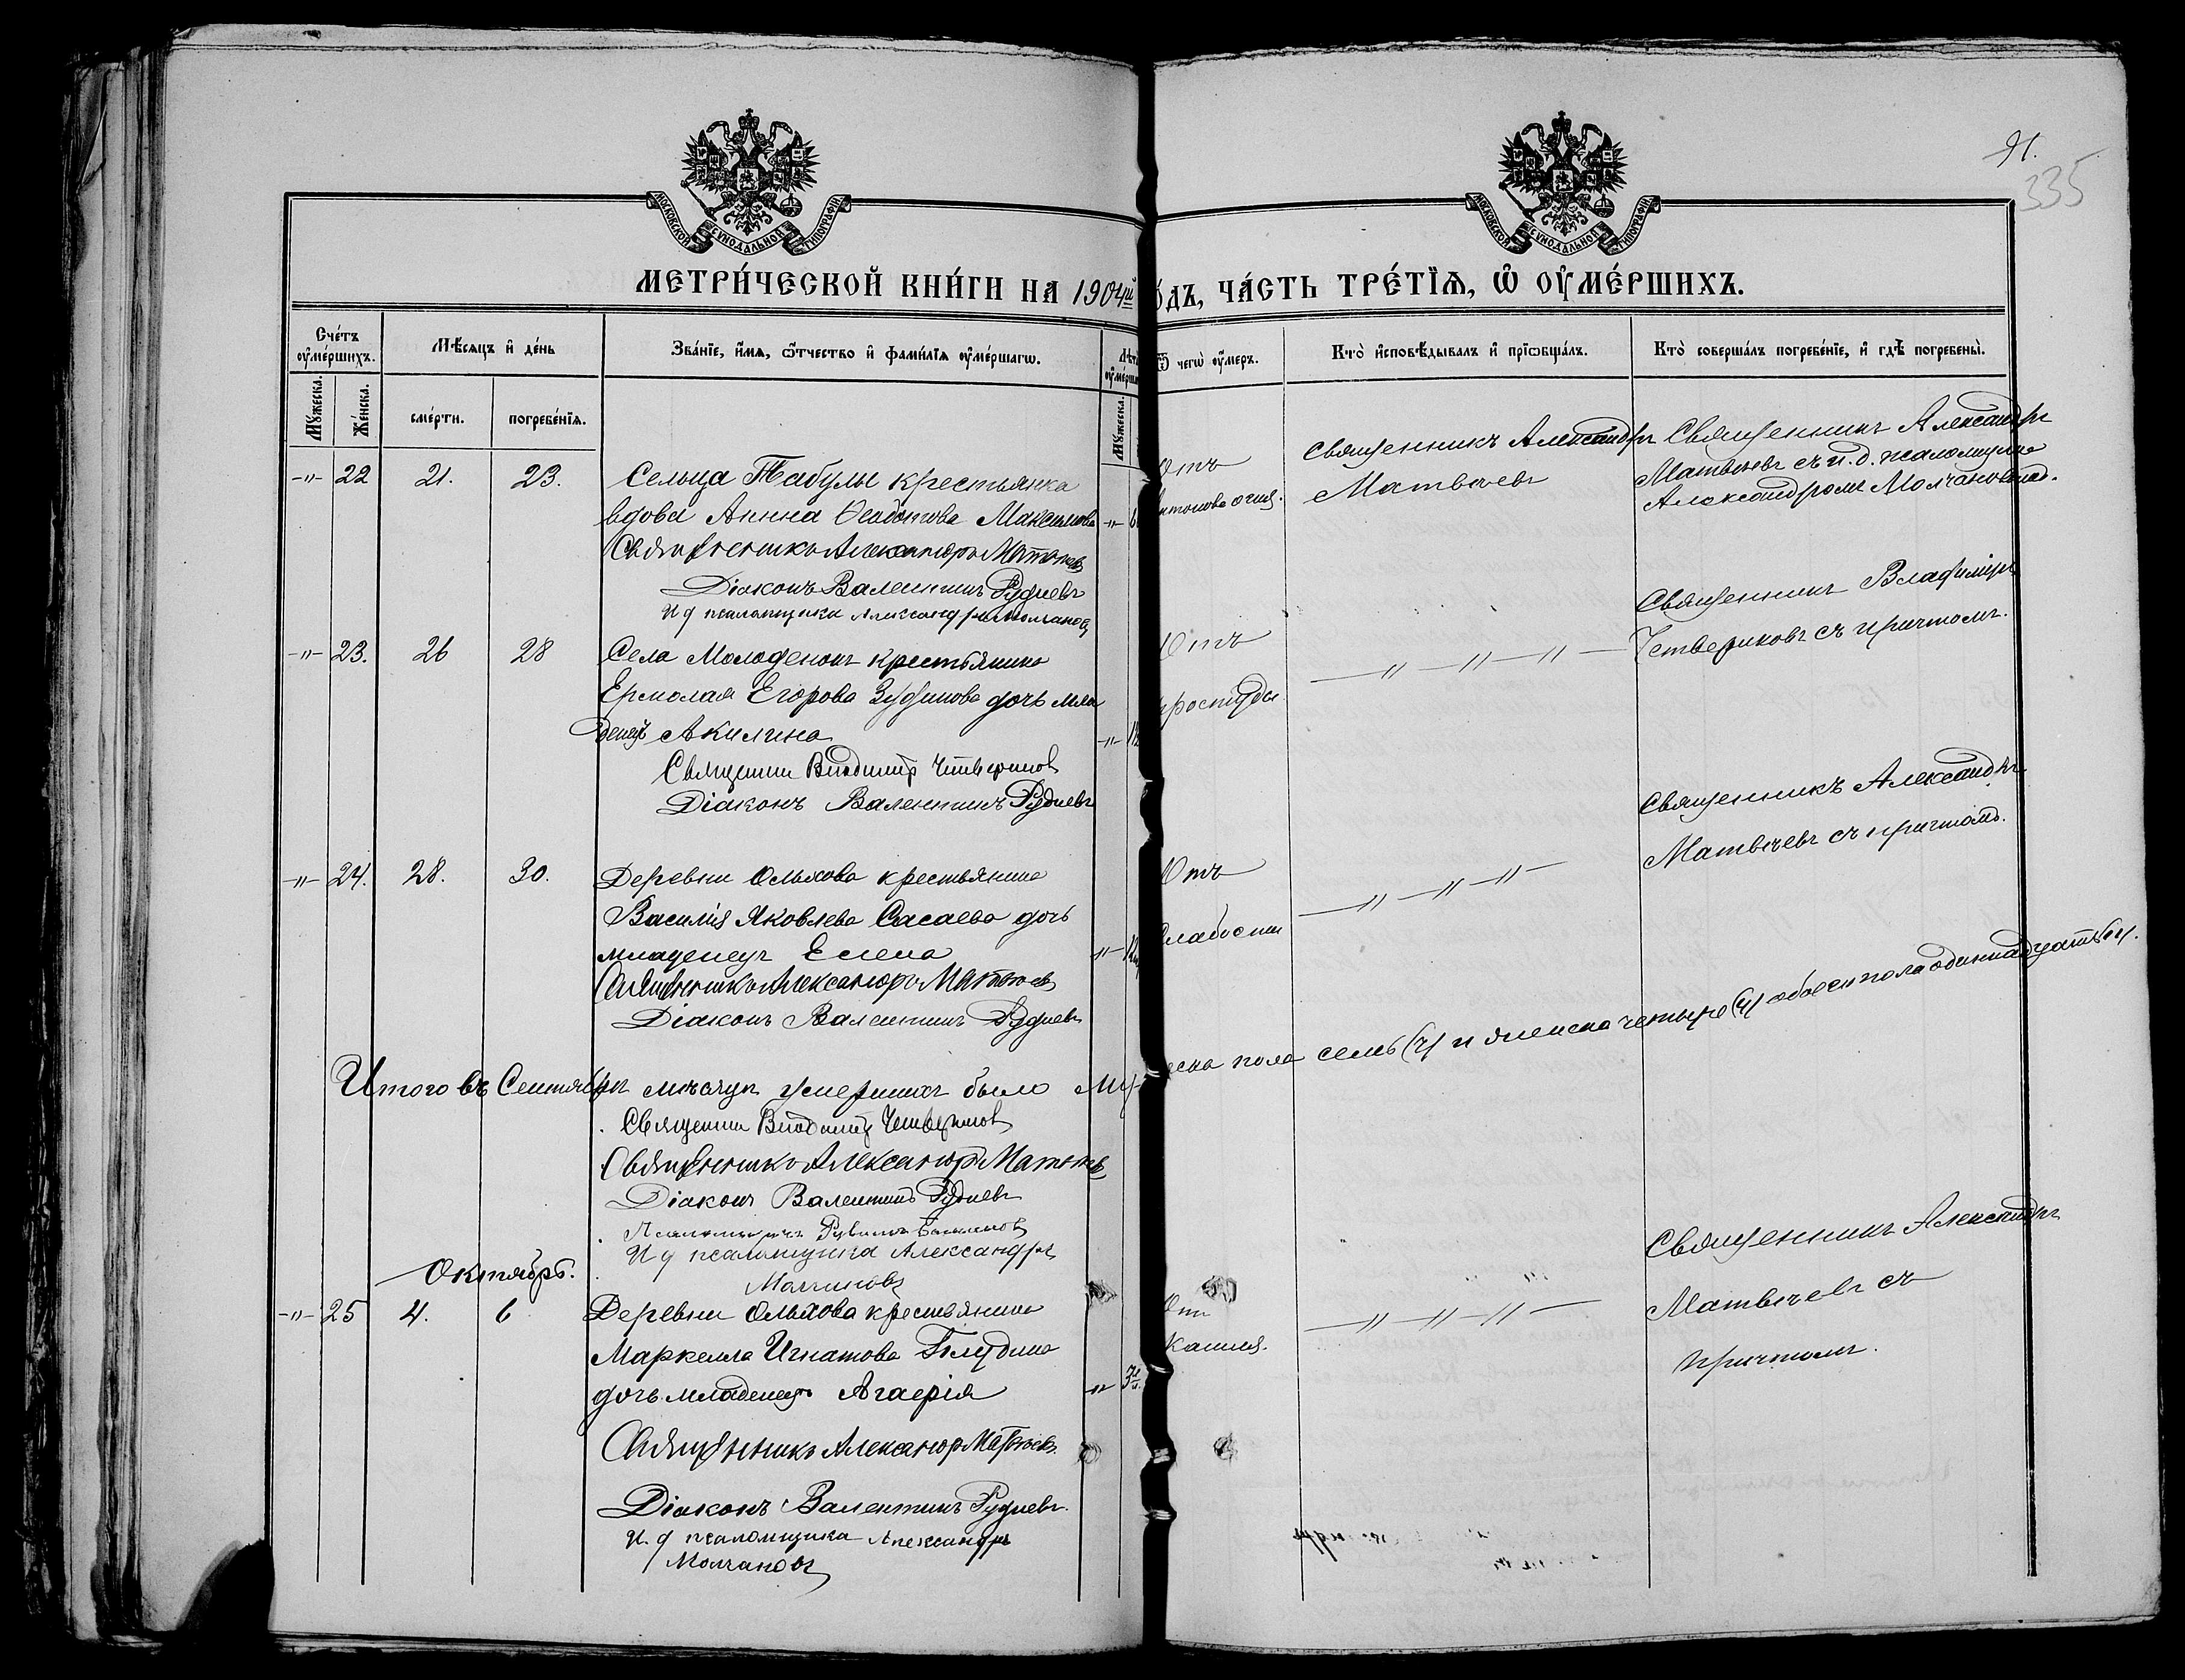 91.
335
МОСКОВСКОЙ СѴНОДАЛЬНОЙ ТИПОГРАФІИ
МОСКОВСКОЙ СѴНОДАЛЬНОЙ ТИПОГРАФІИ
МЕТРИ́ЧЕСКОЙ КНИ́ГИ НА 1904й
о́дъ, ЧА́СТЬ ТРЕ́ТЇѦ, Ѡ҆ ОУ҆МЕ́РШИХЪ.
Сче́тъ оу҆ме́ршихъ.
Мѣ́сѧцъ и҆ де́нь
Зва́нїе, и҆́мѧ, ѻ҆́тчество и҆ фами́лїѧ оу҆ме́ршагѡ.
Ѿ чегѡ̀ оу҆́меръ.
Кто̀ и҆сповѣ́дывалъ и҆ прїѡбща́лъ.
Кто̀ соверша́лъ погребе́нїе, и҆ гдѣ̀ погребены̀.
Мꙋ́жеска.
Же́нска.
сме́рти.
погребе́нїѧ.
Мꙋ́жеска.
-"- 22 21. 23. Сельца Табулы крестьянка
вдова Анна Ѳедотова Максимова -"-
Священникъ Александръ Матвѣевъ
Діаконъ Валентинъ Рудневъ
И д псаломщика Александръ Молчановъ
Отъ
нтонова огня.
Священникъ Александръ
Матвѣевъ
Священникъ Александръ
Матвѣевъ съ и. д. псаломщика
Александромъ Молчановымъ.
-"- 23. 26 28 Села Молоденокъ крестьянина
Ермолая Егорова Зудинова дочь мла
денецъ Акилина -"-
Священникъ Владиміръ Четвериковъ
Діаконъ Валентинъ Рудневъ
Отъ
простуды
-"-"-"-
Священникъ Владиміръ
Четвериковъ съ причтомъ.
-"- 24. 28. 30. Деревни Ольхова крестьянина
Василія Яковлева Сасаева дочь
младенецъ Елена -"-
Священникъ Александръ Матвѣевъ
Діаконъ Валентинъ Рудневъ
Отъ
слабости
-"-"-"-
Священникъ Александръ
Матвѣевъ съ причтомъ.
Итого въ Сентябрѣ мѣсяцѣ умершихъ было Му-
еска пола семь (7) и женска четыре (4) обоего пола одиннадцать
Священникъ Владиміръ Четвериковъ
Священникъ Александръ Матвѣевъ
Діаконъ Валентинъ Рудневъ
Псаломщикъ
И д псаломщика Александръ
Молчановъ
Октябрь.
-"- 25 4. 6 Деревни Ольхова крестьянина
Маркелла Игнатова
дочь младенецъ Агаѳія -"-
Священникъ Александръ Матвѣевъ
Діаконъ Валентинъ Рудневъ.
И. д псаломщика Александръ
Молчановъ
Отъ
кашля.
-"-"-"-
Священникъ Александръ
Матвѣевъ съ
причтомъ.